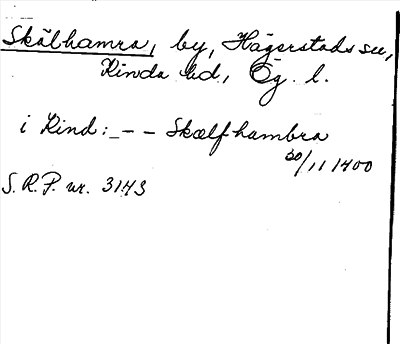 Skälhamra, by, Hägerstads sn,
Kinda hd, Ög. l.
i Kind: _ - - Skælfhambra
30/11 1400
S. R. P. nr. 3143